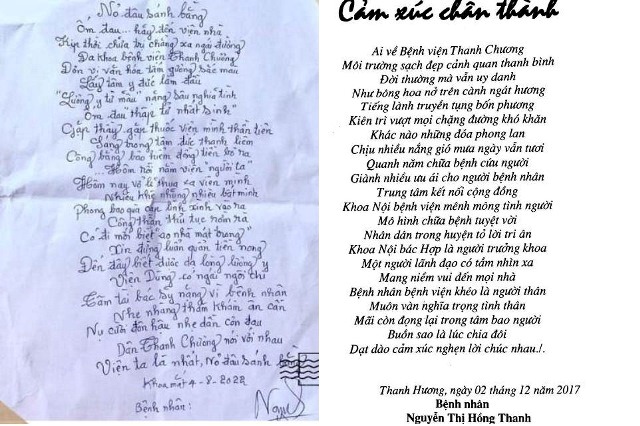 "Nỏ đâu sánh bằng"
Ốm đau... hãy đến viện nhà
Kịp thời chữa trị chẳng xa ngái đường
Đa khoa bệnh viện Thanh Chương
Đơn vị văn hóa tấm gương sắc màu
Lấy tâm y đức làm đầu
"Lương y từ mẫu" nặng sâu nghĩa tình
Ốm đau "thập tử nhất sinh"
Gặp thầy gặp thuốc viện mình thân tiên
Sáng trong tâm đức thanh liêm
Công bằng bao tiềm động tiền bỏ ra
Hôm nay
Nhiều khi những nhiễu bất minh
Phong bao gia cận linh xinh vào ra
Công thần thủ tục rơm rà
Có đi mới biết ao nhà mát trong"
Xin đừng luẩn quẩn tiền nong
Đến đây biết được dạ long lương y
Viện Dũng có ngai ngôi thi
Tâm tài bác sỹ nặng vì bệnh nhân
Nhẹ nhàng thăm khám ân cần
Nụ cười đôn hậu nhẹ dần cơn đau
Dân Thanh Chương nói với nhau
Viện ta là nhất, Nỏ đâu sánh bằng
Khoa mắt 4-8-2022
Bệnh nhân:
Cảm xúc chân thành
Ai về Bệnh viện Thanh Chương
Môi trường sạch đẹp cảnh quan thanh bình
Đời thường mà vẫn uy danh
Như bông hoa nở trên cành ngát hương
Tiếng lành truyền tụng bốn phương
Kiên trì vượt mọi chặng đường khó khăn
Khác nào những đóa phong lan
Chịu nhiều nắng gió mưa ngày vẫn tươi
Quanh năm chữa bệnh cứu người
Giành nhiều ưu ái cho người bệnh nhân
Trung tâm kết nối cộng đồng
Khoa Nội bệnh viện mênh mông tình người
Mô hình chữa bệnh tuyệt vời
Nhân dân trong huyện tỏ lời tri ân
Khoa Nội bác Hợp là người trưởng khoa
Một người lãnh đạo có tầm nhìn xa
Mang niềm vui đến mọi nhà
Bệnh nhân bệnh viện khéo là người thân
Muôn vàn nghĩa trọng tình thân
Mãi còn đọng lại trong tâm bao người
Buồn sao là lúc chia đôi
Dạt dào cảm xúc nghẹn lời chúc nhau./.
Thanh Hương, ngày 02 tháng 12 năm 2017
Bệnh nhân
Nguyễn Thị Hồng Thanh